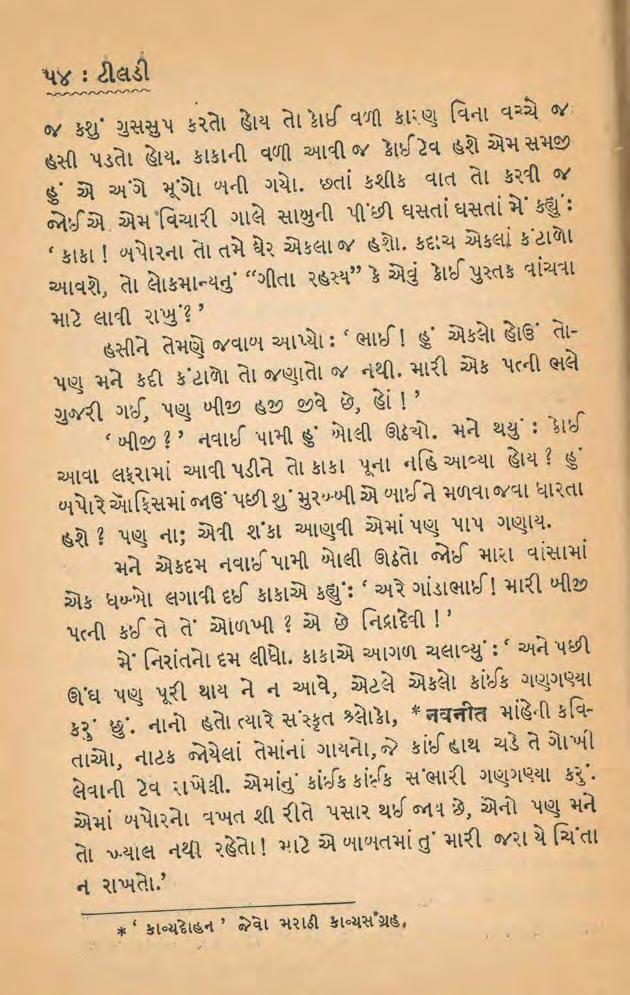 ૫૪ : ટીલડી
જ કશું ગુસસુપ કરતો હોય તો કોઈ વળી કારણ વિના વચ્ચે જ
હસી પડતો હોય. કાકાની વળી આવી જ કોઈ ટેવ હશે એમ સમજી
હું એ અંગે મૂંગો બની ગયો. છતાં કશીક વાત તો કરવી જ
જોઈએ એમ વિચારી ગાલે સાબુની પીંછી ઘસતાં ઘસતાં મેં કહ્યું :
‘ કાકા ! બપોરના તો તમે ઘેર એકલા જ હશો. કદાચ એકલાં કંટાળો
આવશે, તો લોકમાન્યનું “ગીતા રહસ્ય” કે એવું કોઈ પુસ્તક વાંચવા
માટે લાવી રાખું? ’
હસીને તેમણે જવાબ આપ્યો : ‘ ભાઈ ! હું એકલો હોઉં તો-
પણ મને કદી કંટાળો તો જણાતો જ નથી. મારી એક પત્ની ભલે
ગુજરી ગઈ, પણ બીજી હજી જીવે છે, હોં ! ’
‘ બીજી ? ’ નવાઈ પામી હું બોલી ઊઠ્યો. મને થયું : કોઈ
આવા લફરામાં આવી પડીને તો કાકા પૂના નહિ આવ્યા હોય ? હું
બપોરે ઑફિસમાં જાઉં પછી શું મુરબ્બી એ બાઈને મળવા જવા ધારતા
હશે ? પણ ના; એવી શંકા આણવી એમાં પણ પાપ ગણાય.
મને એકદમ નવાઈ પામી બોલી ઊઠતો જોઈ મારા વાંસામાં
એક ધબ્બો લગાવી દઈ કાકાએ કહ્યું: ‘ અરે ગાંડાભાઈ! મારી બીજી
પત્ની કઈ તે તેં ઓળખી ? એ છે નિદ્રાદેવી ! ’
મેં નિરાંતનો દમ લીધો. કાકાએ આગળ ચલાવ્યું : ‘ અને પછી
ઊંઘ પણ પૂરી થાય ને ન આવે, એટલે એકલો કાંઈક ગણગણ્યા
કરું છું. નાનો હતો ત્યારે સંસ્કૃત શ્લોકો, *नवनीत માંહેની કવિ-
તાઓ, નાટક જોયેલાં તેમાંનાં ગાયનો, જે કાંઈ હાથ ચડે તે ગોખી
લેવાની ટેવ રાખેલી. એમાંનું કાંઈક કાંઈક સંભારી ગણગણ્યા કરું.
એમાં બપોરનો વખત શી રીતે પસાર થઈ જાય છે, એનો પણ મને
તો ખ્યાલ નથી રહેતો! માટે એ બાબતમાં તું મારી જરા યે ચિંતા
ન રાખતો.’
* ‘ કાવ્યદોહન ’ જેવો મરાઠી કાવ્યસંગ્રહ.